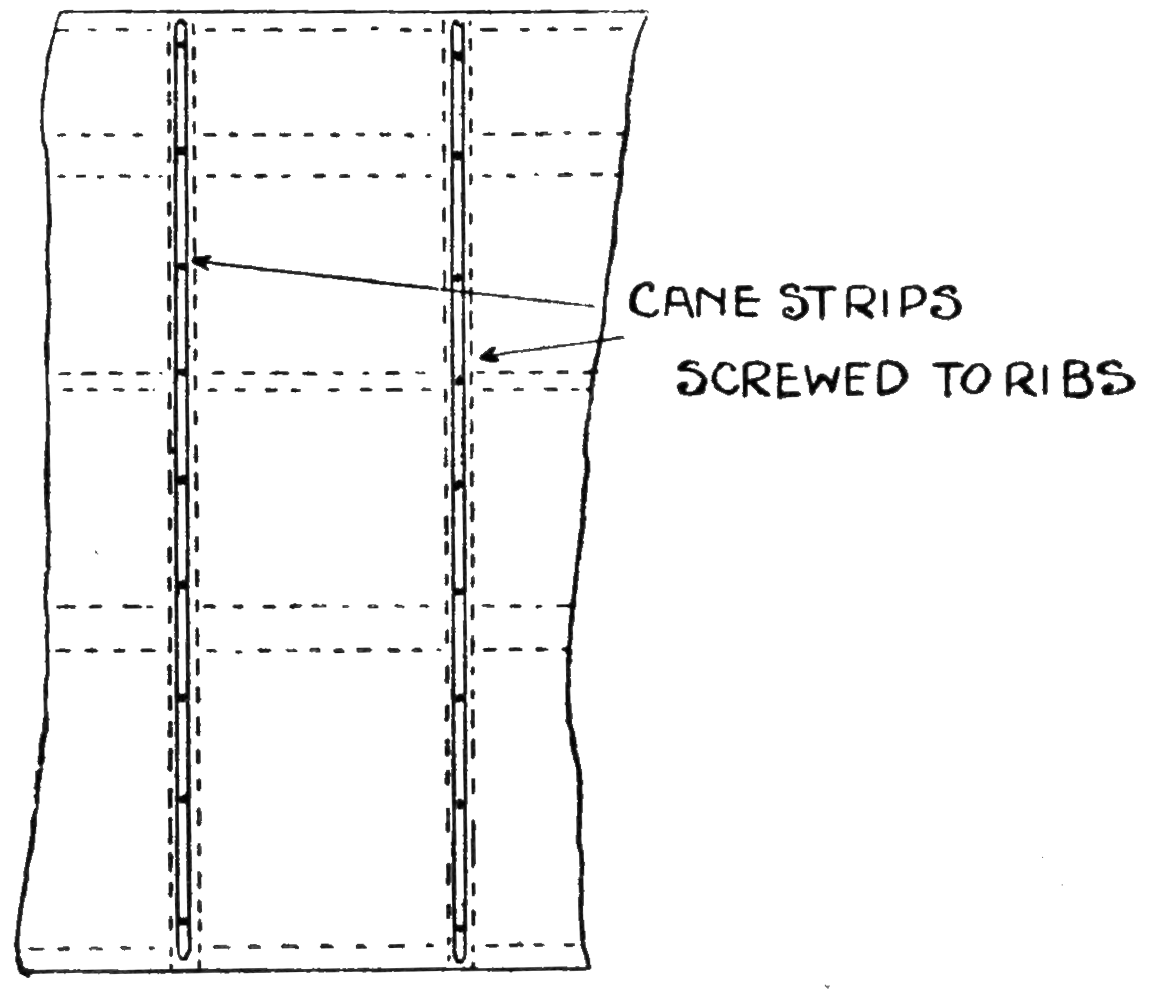 CANE STRIPS
SCREWED TO RIBS